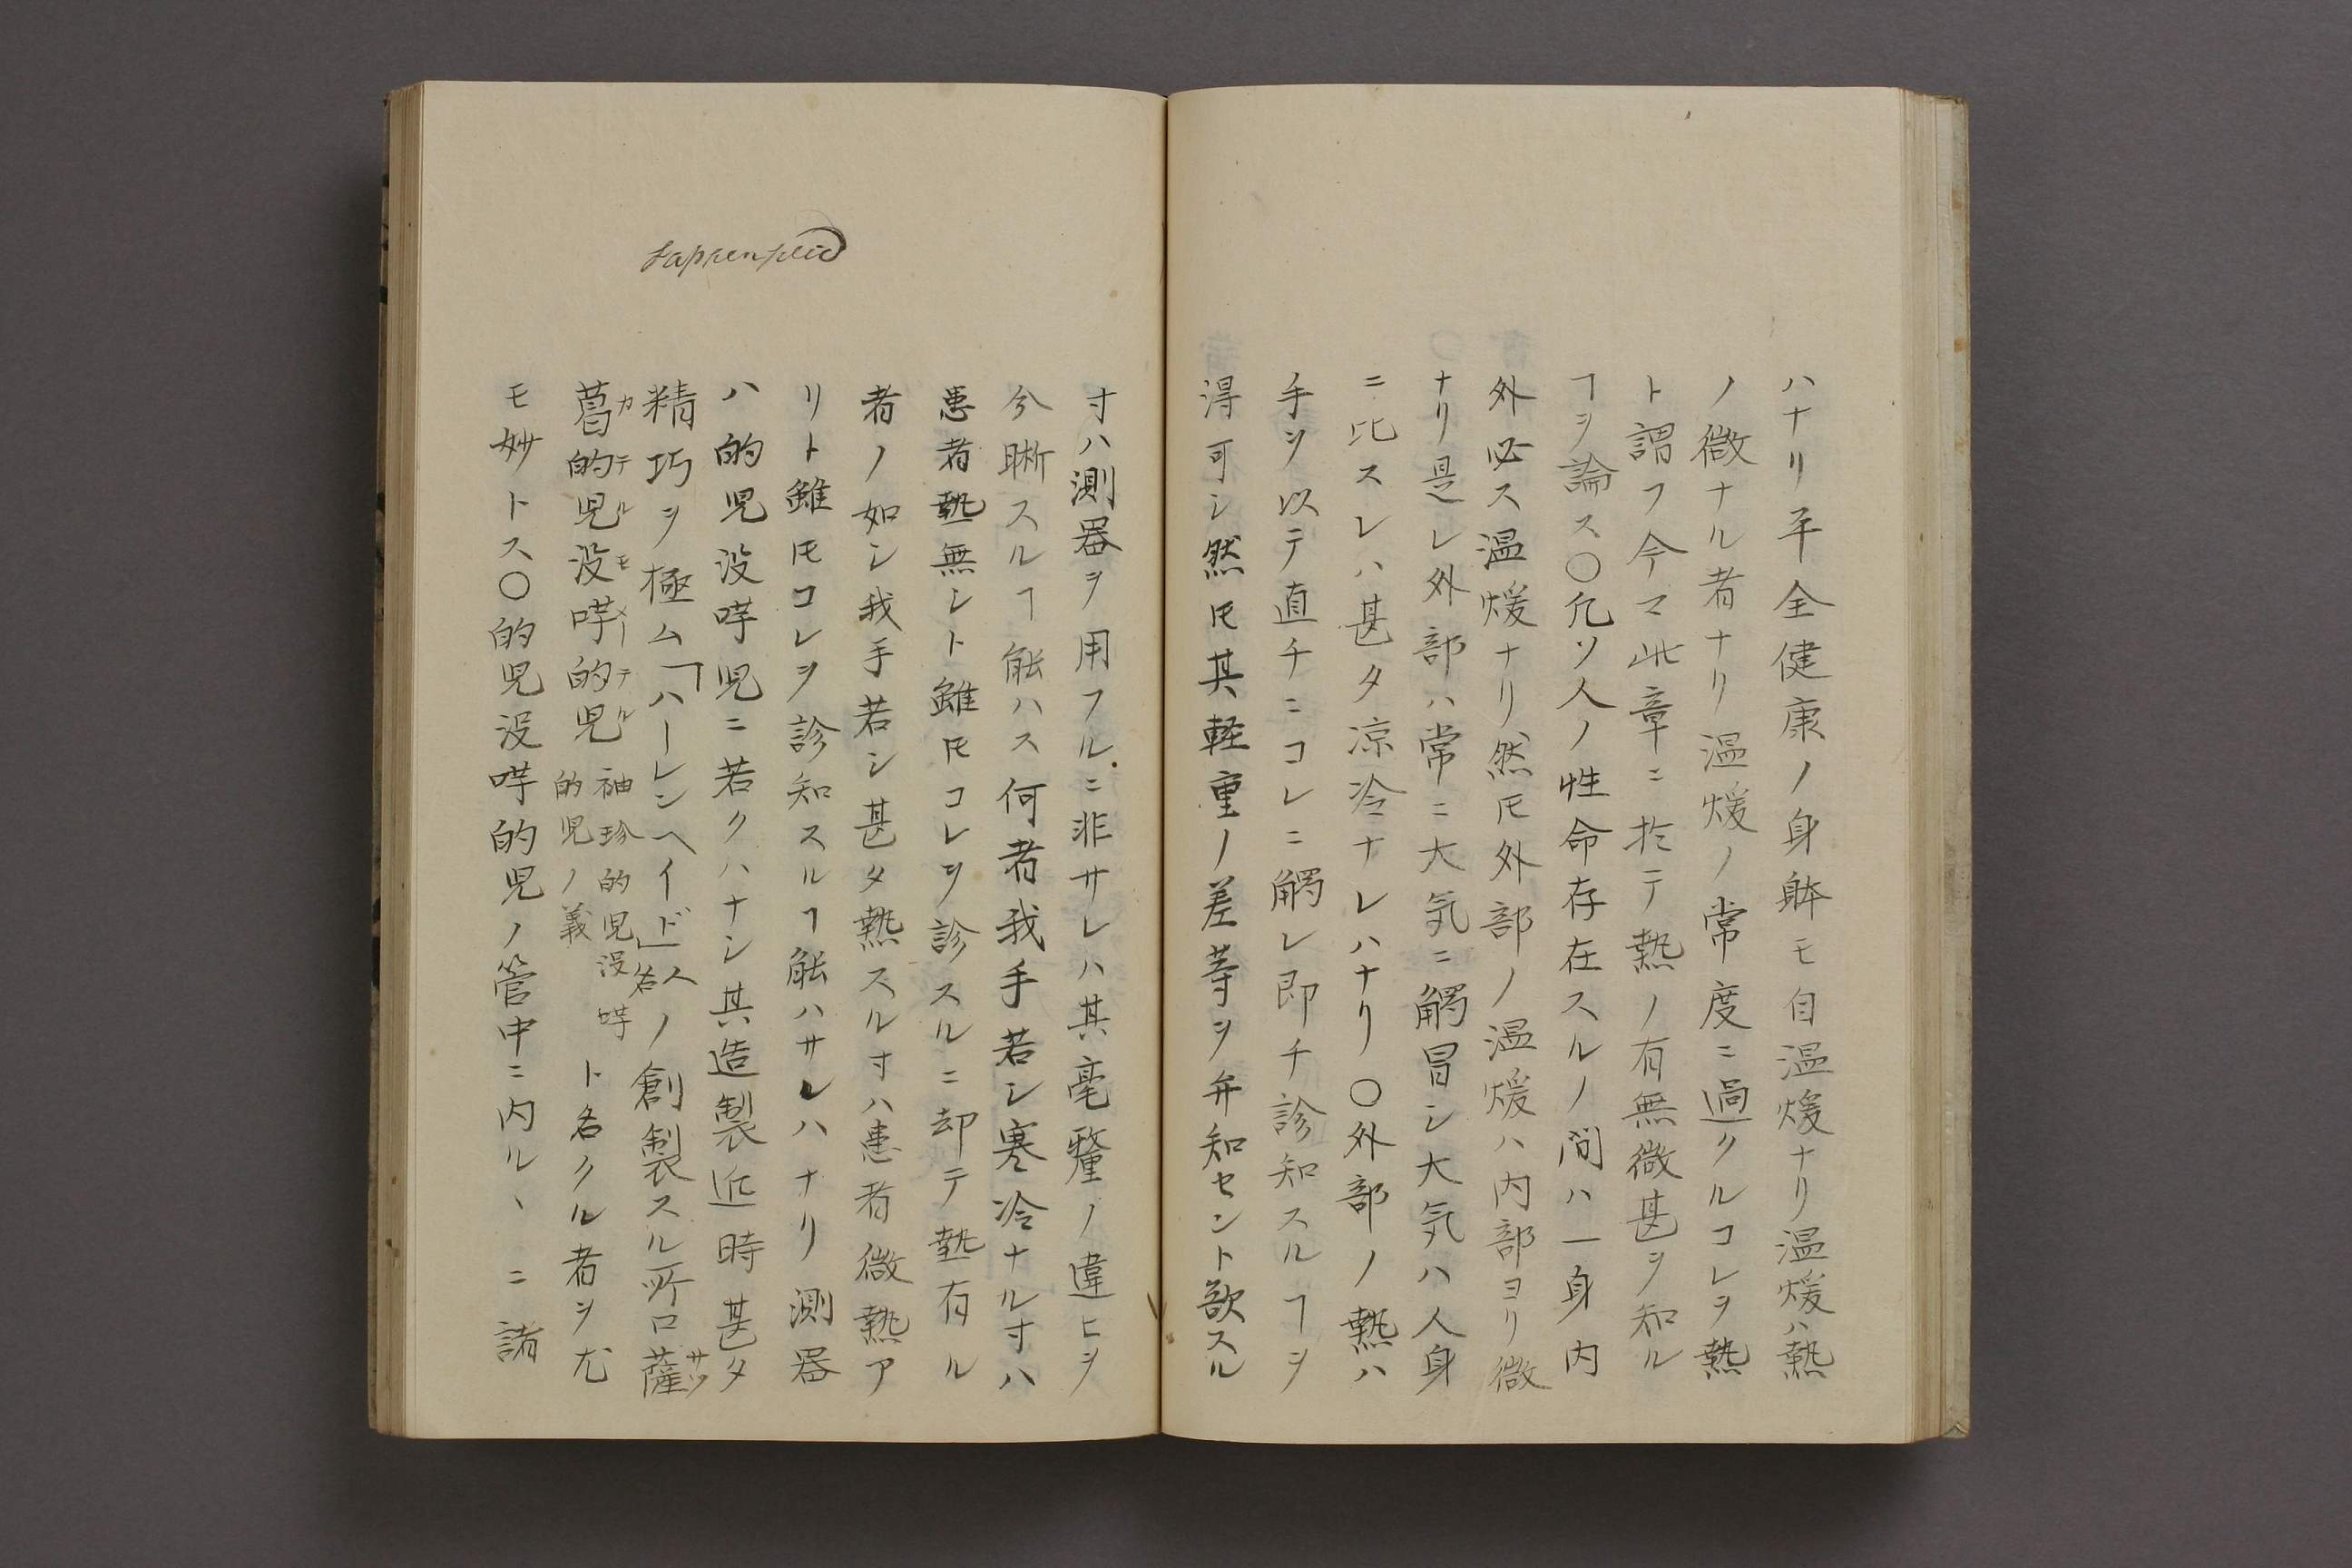 ハナリ平全健康ノ身躰モ自温煖ナリ温煖ハ熱
ノ微ナル者ナリ温煖ノ常度ニ過クルコレヲ熱
ト謂フ今マ此章ニ於テ熱ノ有無微甚ヲ知ル
ヿヲ論ス〇凢ソ人ノ性命存在スルノ間ハ一身内
外必ス温煖ナリ然𪜈外部ノ温煖ハ内部ヨリ微
ナリ是レ外部ハ常ニ大気ニ觸冒シ大気ハ人身
ニ比スレハ甚タ涼冷ナレハナリ〇外部ノ熱ハ
手ヲ以テ直チニコレニ觸レ即チ診知スルヿヲ
得可シ然𪜈其軽重ノ差等ヲ弁知セント欲スル
寸ハ測器ヲ用フルニ非サレハ其毫釐ノ違ヒヲ
分晰スルヿ能ハス何者我手若シ寒冷ナル寸ハ
患者熱無シト雖𪜈コレヲ診スルニ却テ熱有ル
者ノ如シ我手若シ甚タ熱スル寸ハ患者微熱ア
リト雖𪜈コレヲ診知スルヿ能ハサレハナリ測器
ハ的児没哶児ニ若クハナシ其造製近時甚タ
精巧ヲ極ム「ハーレンヘイド」人名ノ創製スル所ロ薩サツ
葛的児没哶的児カテルモメーテル袖珍的児没哶的児ノ義ト名クル者ヲ尤
モ妙トス〇的児没哶的児ノ管中ニ内ルヽニ諸